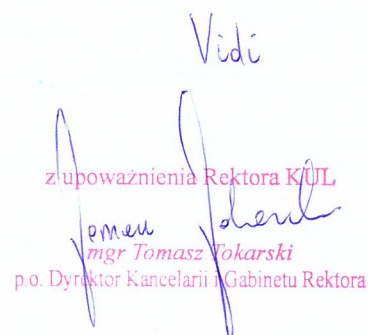 Vidi
z upoważnienia Rektora KUL
mgr Tomasz Tokarski
p.o. Dyrektor Kancelarii i Gabinetu Rektora